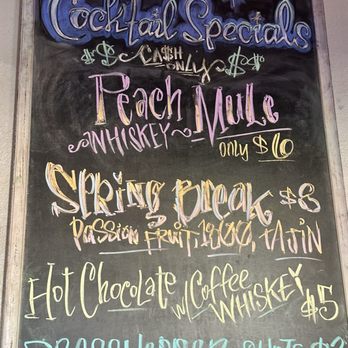 Cocktail Specials
$$ CASH ONLY $$
Peach Mule
WHISKEY only $6
Spring Break $8
Passion Fruit, TAJIN
Hot Chocolate w/ Coffee WHISKEY $5